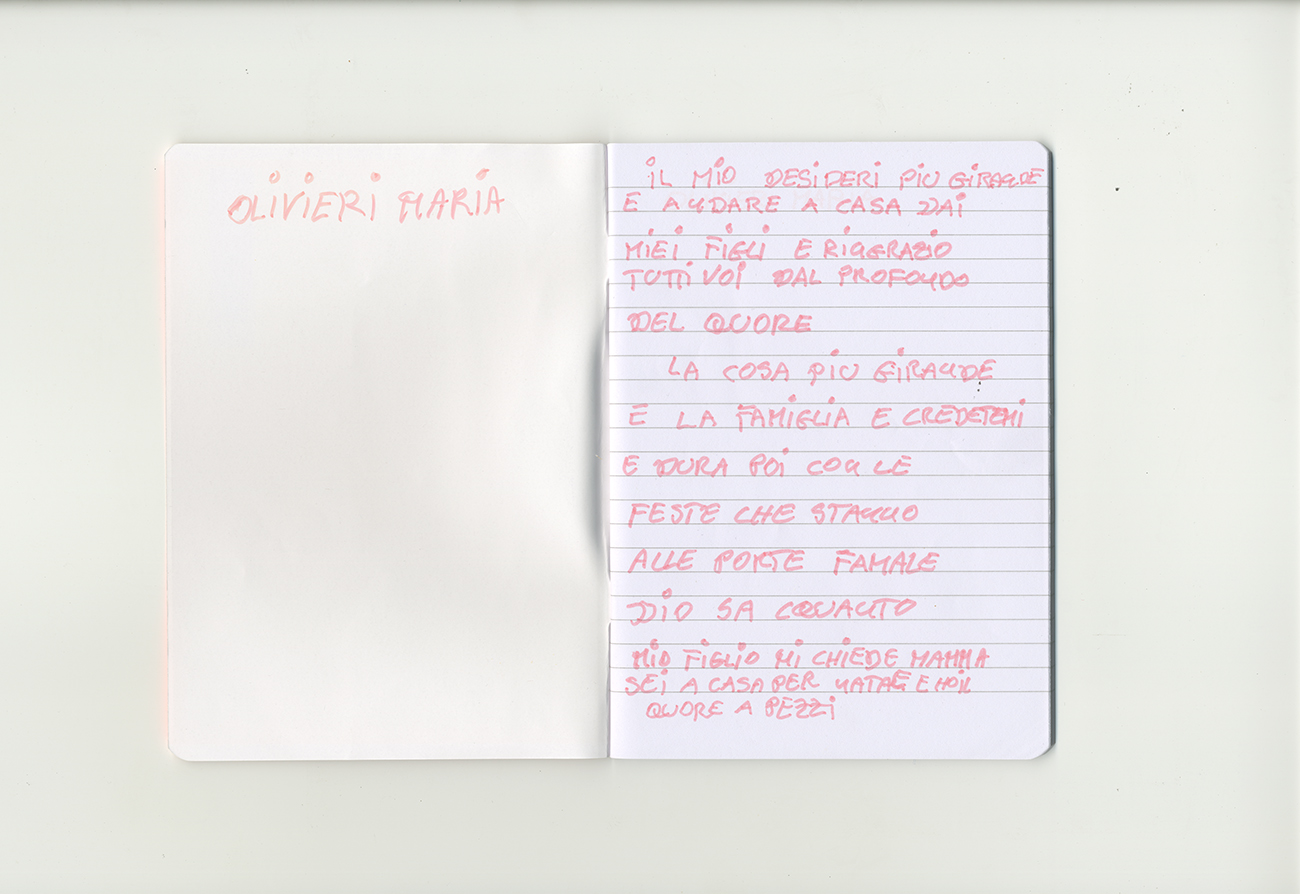 OLIVIERI MARIA
IL MIO DESIDERI PIU GIRANDE
E ANDARE A CASA DAI
MIEI FIGLI E RIGGRAZIO
TUTTI VOI DAL PROFONDO
DEL QUORE
LA COSA PIU GIRANDE
E LA FAMIGLIA E CREDETEMI
E DURA POI CON LE
FESTE CHE STANNO
ALLE PORTE FAMALE
DIO SA CQUANTO
MIO FIGLIO MI CHIEDE MAMMA
SEI A CASA PER NATALE E HO IL
QUORE A PEZZI